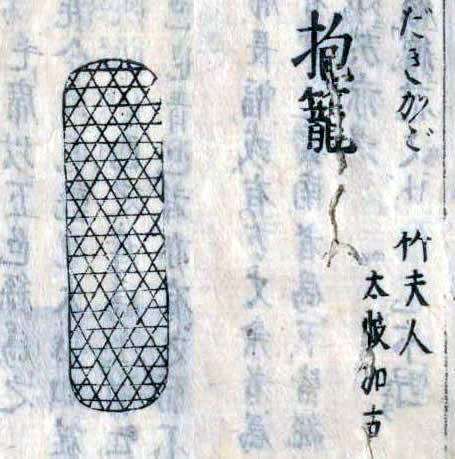 だきかご
抱籠
竹夫人
太岐加古